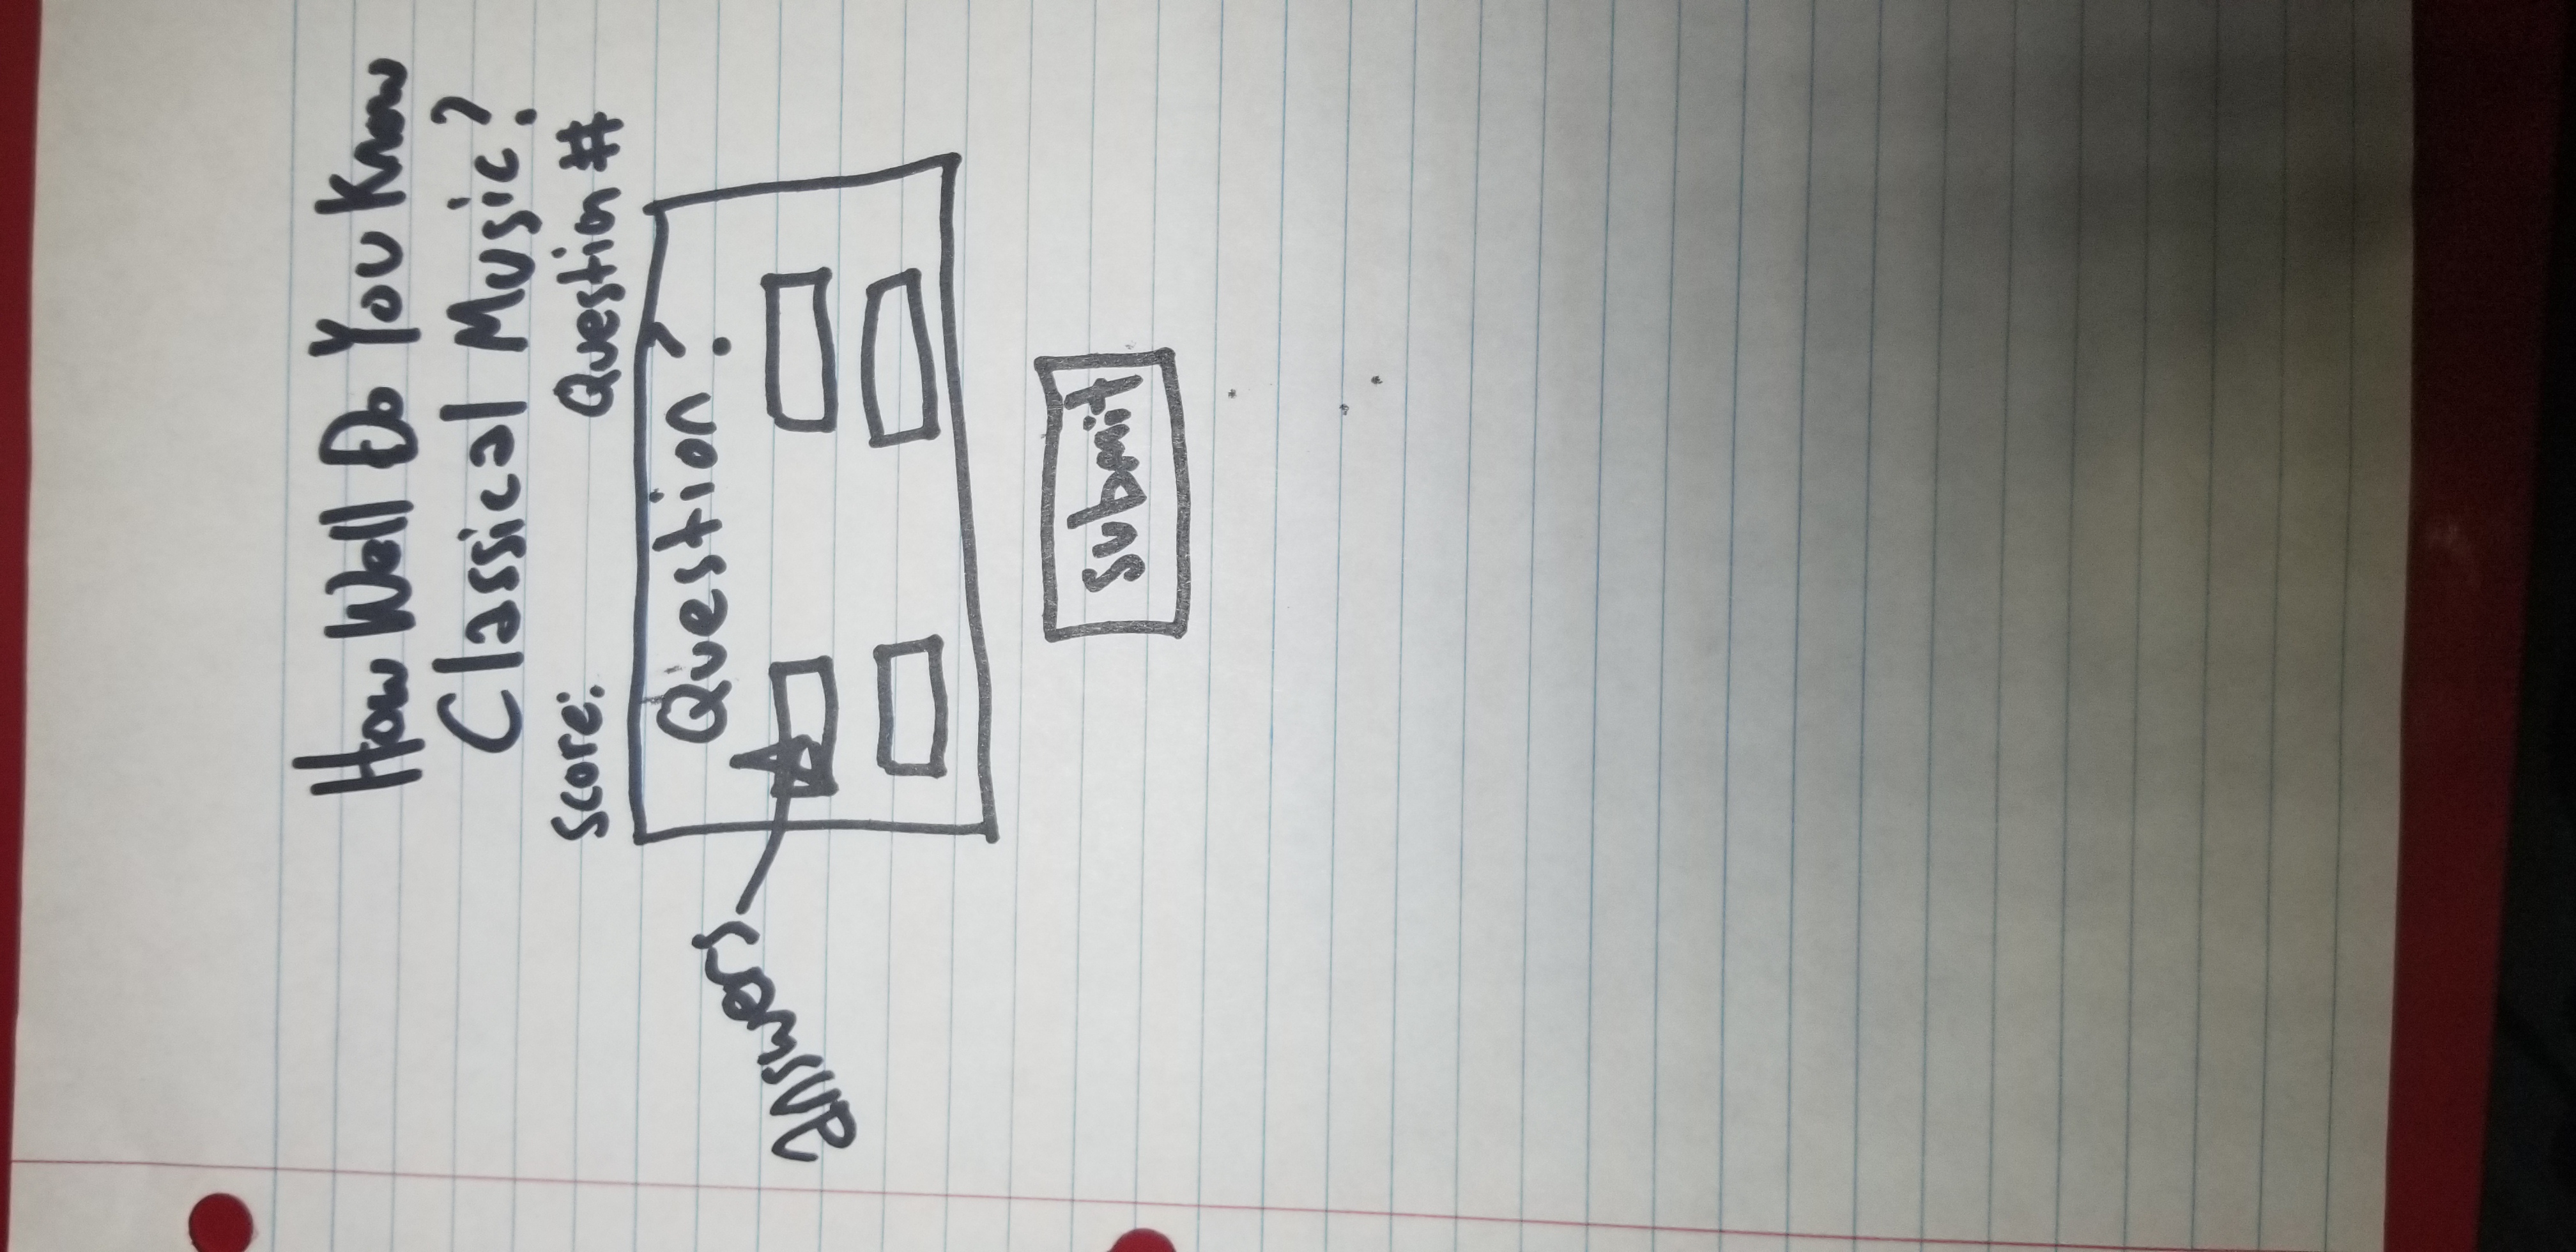 How Well Do You Know
Classical Music?
Score: Question #
Question?
answers
submit